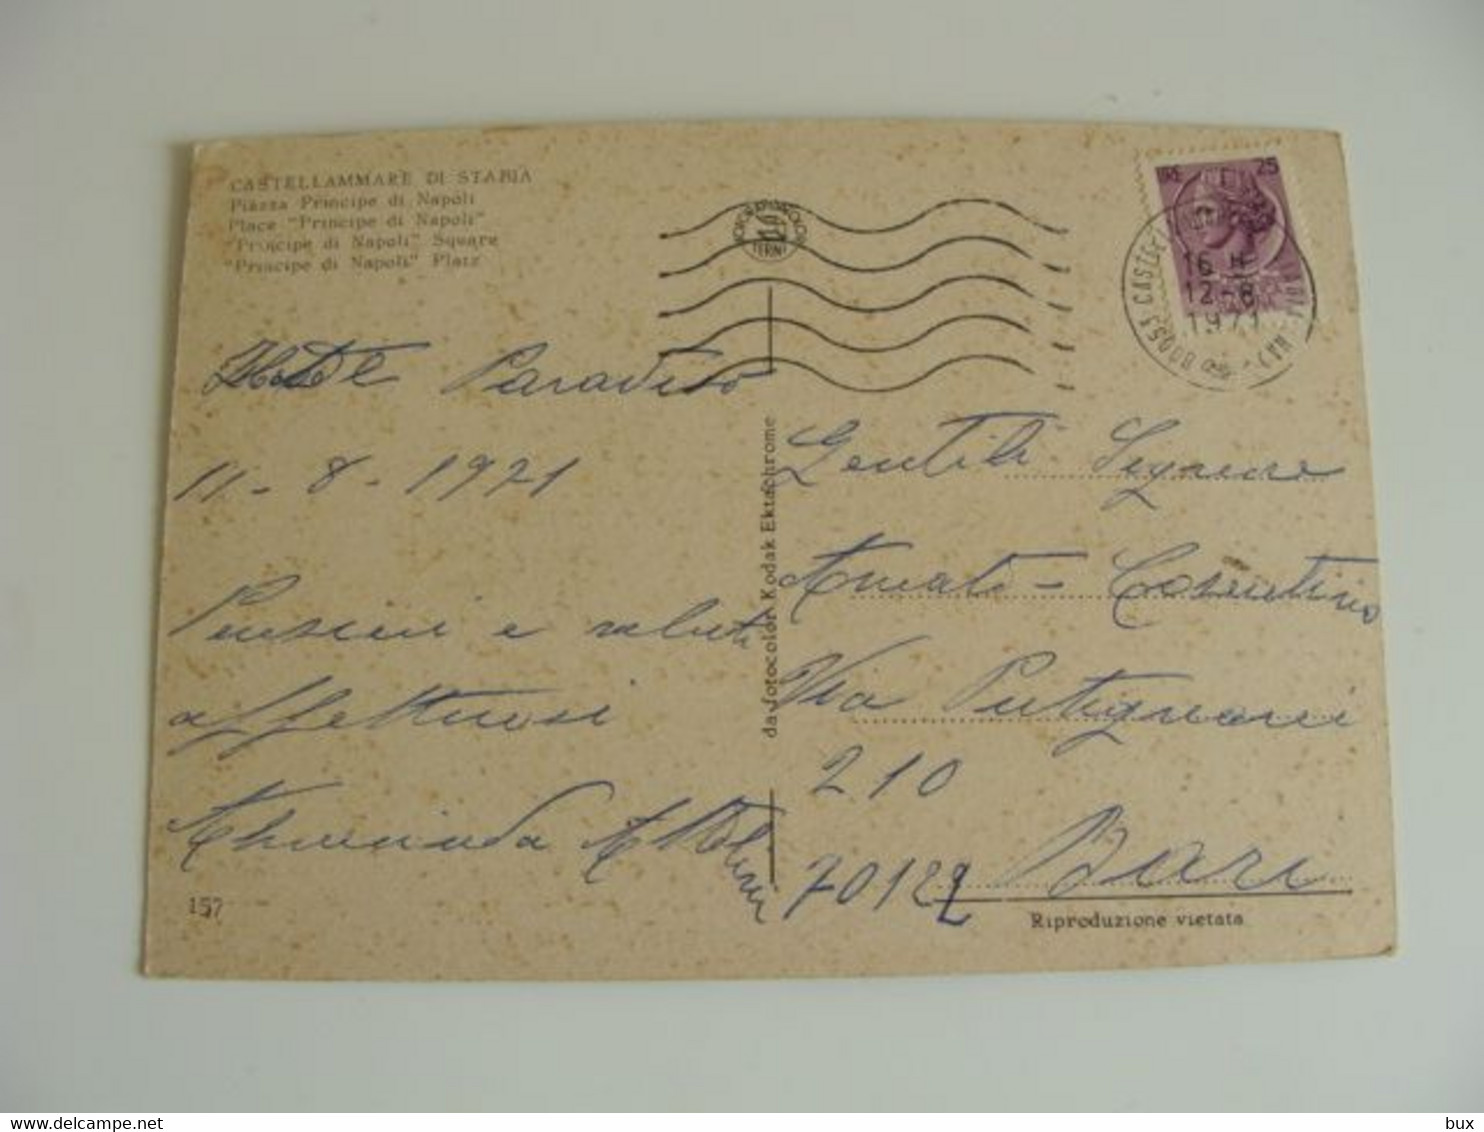 CASTELLAMMARE DI STABIA
Piazza Principe di Napoli
Place "Principe di Napoli"
"Principe di Napoli" Square
"Principe di Napoli" Platz
LIRE 25
TERNI
80053 CASTELLAMMARE
16 H
12-8
1971
(NA)
Hotel Paradiso
11-8-1971
Pensieri e saluti
affettuosi
157
da fotocolor Kodak Ektachrome
Gentili Signore
Amati-Cosentino
Via Putignani
210
70122 Bari
Riproduzione vietata
bux